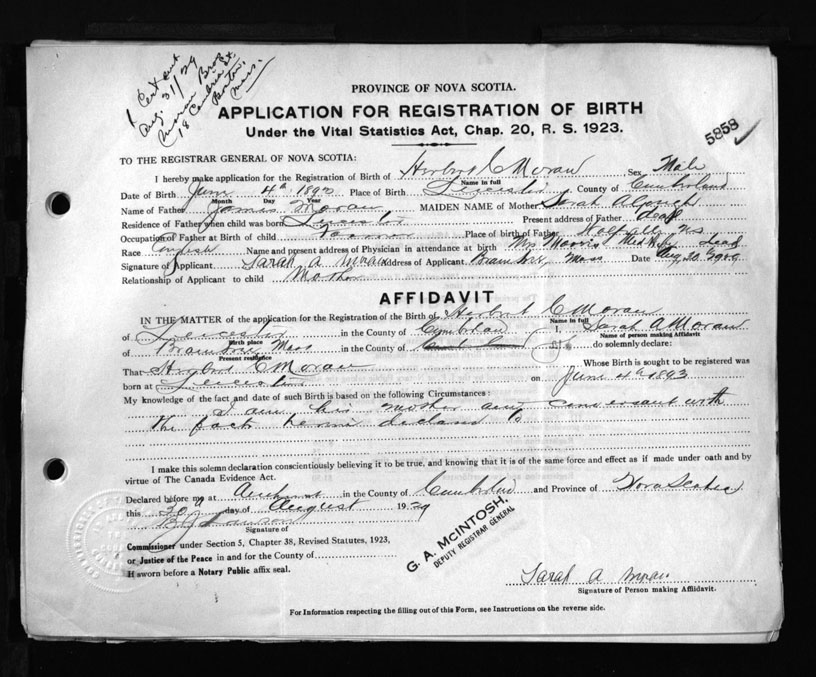 1 Cert out
Aug. 31/29
Moran Bros
18 St.
Boston,
Mass.
PROVINCE OF NOVA SCOTIA.
APPLICATION FOR REGISTRATION OF BIRTH
Under the Vital Statistics Act, Chap. 20, R. S. 1923.
5858
TO THE REGISTRAR GENERAL OF NOVA SCOTIA:
I hereby make application for the Registration of Birth of Herbert C Moran Sex Male
Name in full
Date of Birth June 4th 1893 Place of Birth Leicester County of Cumberland
Month Day Year
Name of Father James Moran MAIDEN NAME of Mother Sarah A
Residence of Father when child was born Leicester Present address of Father dead
Occupation of Father at Birth of child Farmer Place of birth of Father N S
Race English Name and present address of Physician in attendance at birth Mrs Morris Mid Wife dead
Signature of Applicant Sarah A Moran Address of Applicant Braintree, Mass Date Aug 20 1929
Relationship of Applicant to child Mother
AFFIDAVIT
IN THE MATTER of the application for the Registration of the Birth of Herbert C Moran
Name in full
of Leicester in the County of Cumberland I, Sarah A Moran
Birth place Name of person making Affidavit
of Braintree Mass in the County of do solemnly declare:
Present residence
That Herbert C Moran Whose Birth is sought to be registered was
born at Leicester on June 4th 1893
My knowledge of the fact and date of such Birth is based on the following Circumstances:
I am his mother and conversant with
the facts herein declared to
I make this solemn declaration conscientiously believing it to be true, and knowing that it is of the same force and effect as if made under oath and by
virtue of The Canada Evidence Act.
Declared before me at Amherst in the County of Cumberland and Province of Nova Scotia
this 20th day of August 1929
Signature of
Commissioner under Section 5, Chapter 38, Revised Statutes, 1923,
or Justice of the Peace in and for the County of
If sworn before a Notary Public affix seal.
G. A. McINTOSH.
DEPUTY REGISTRAR GENERAL
Sarah A Moran
Signature of Person making Affidavit.
For Information respecting the filling out of this Form, see Instructions on the reverse side.